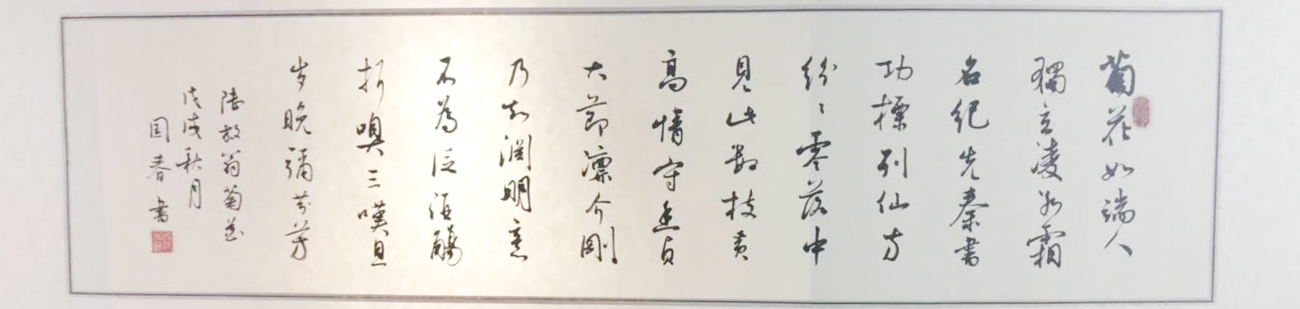 菊花如端人
獨立凌冰霜
名紀先秦書
功標列仙方
紛〻零落中
見此數枝黃
高情守幽貞
大節凜介剛
乃知淵明意
不為泛酒觴
折嗅三嘆息
岁晚彌芬芳
陸放翁菊花
戊戌秋月
国春書